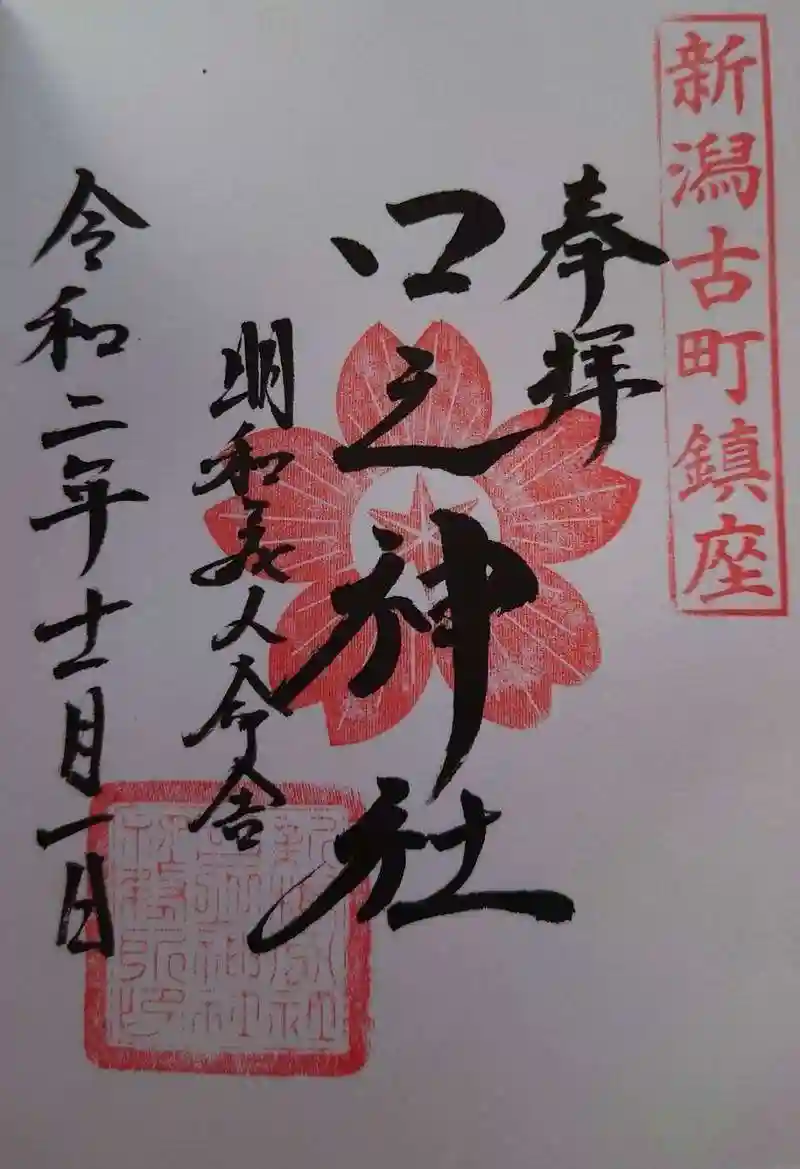 新潟古町鎮座
奉拝
口之神社
明和義人
令和二年十一月一日
社務所印